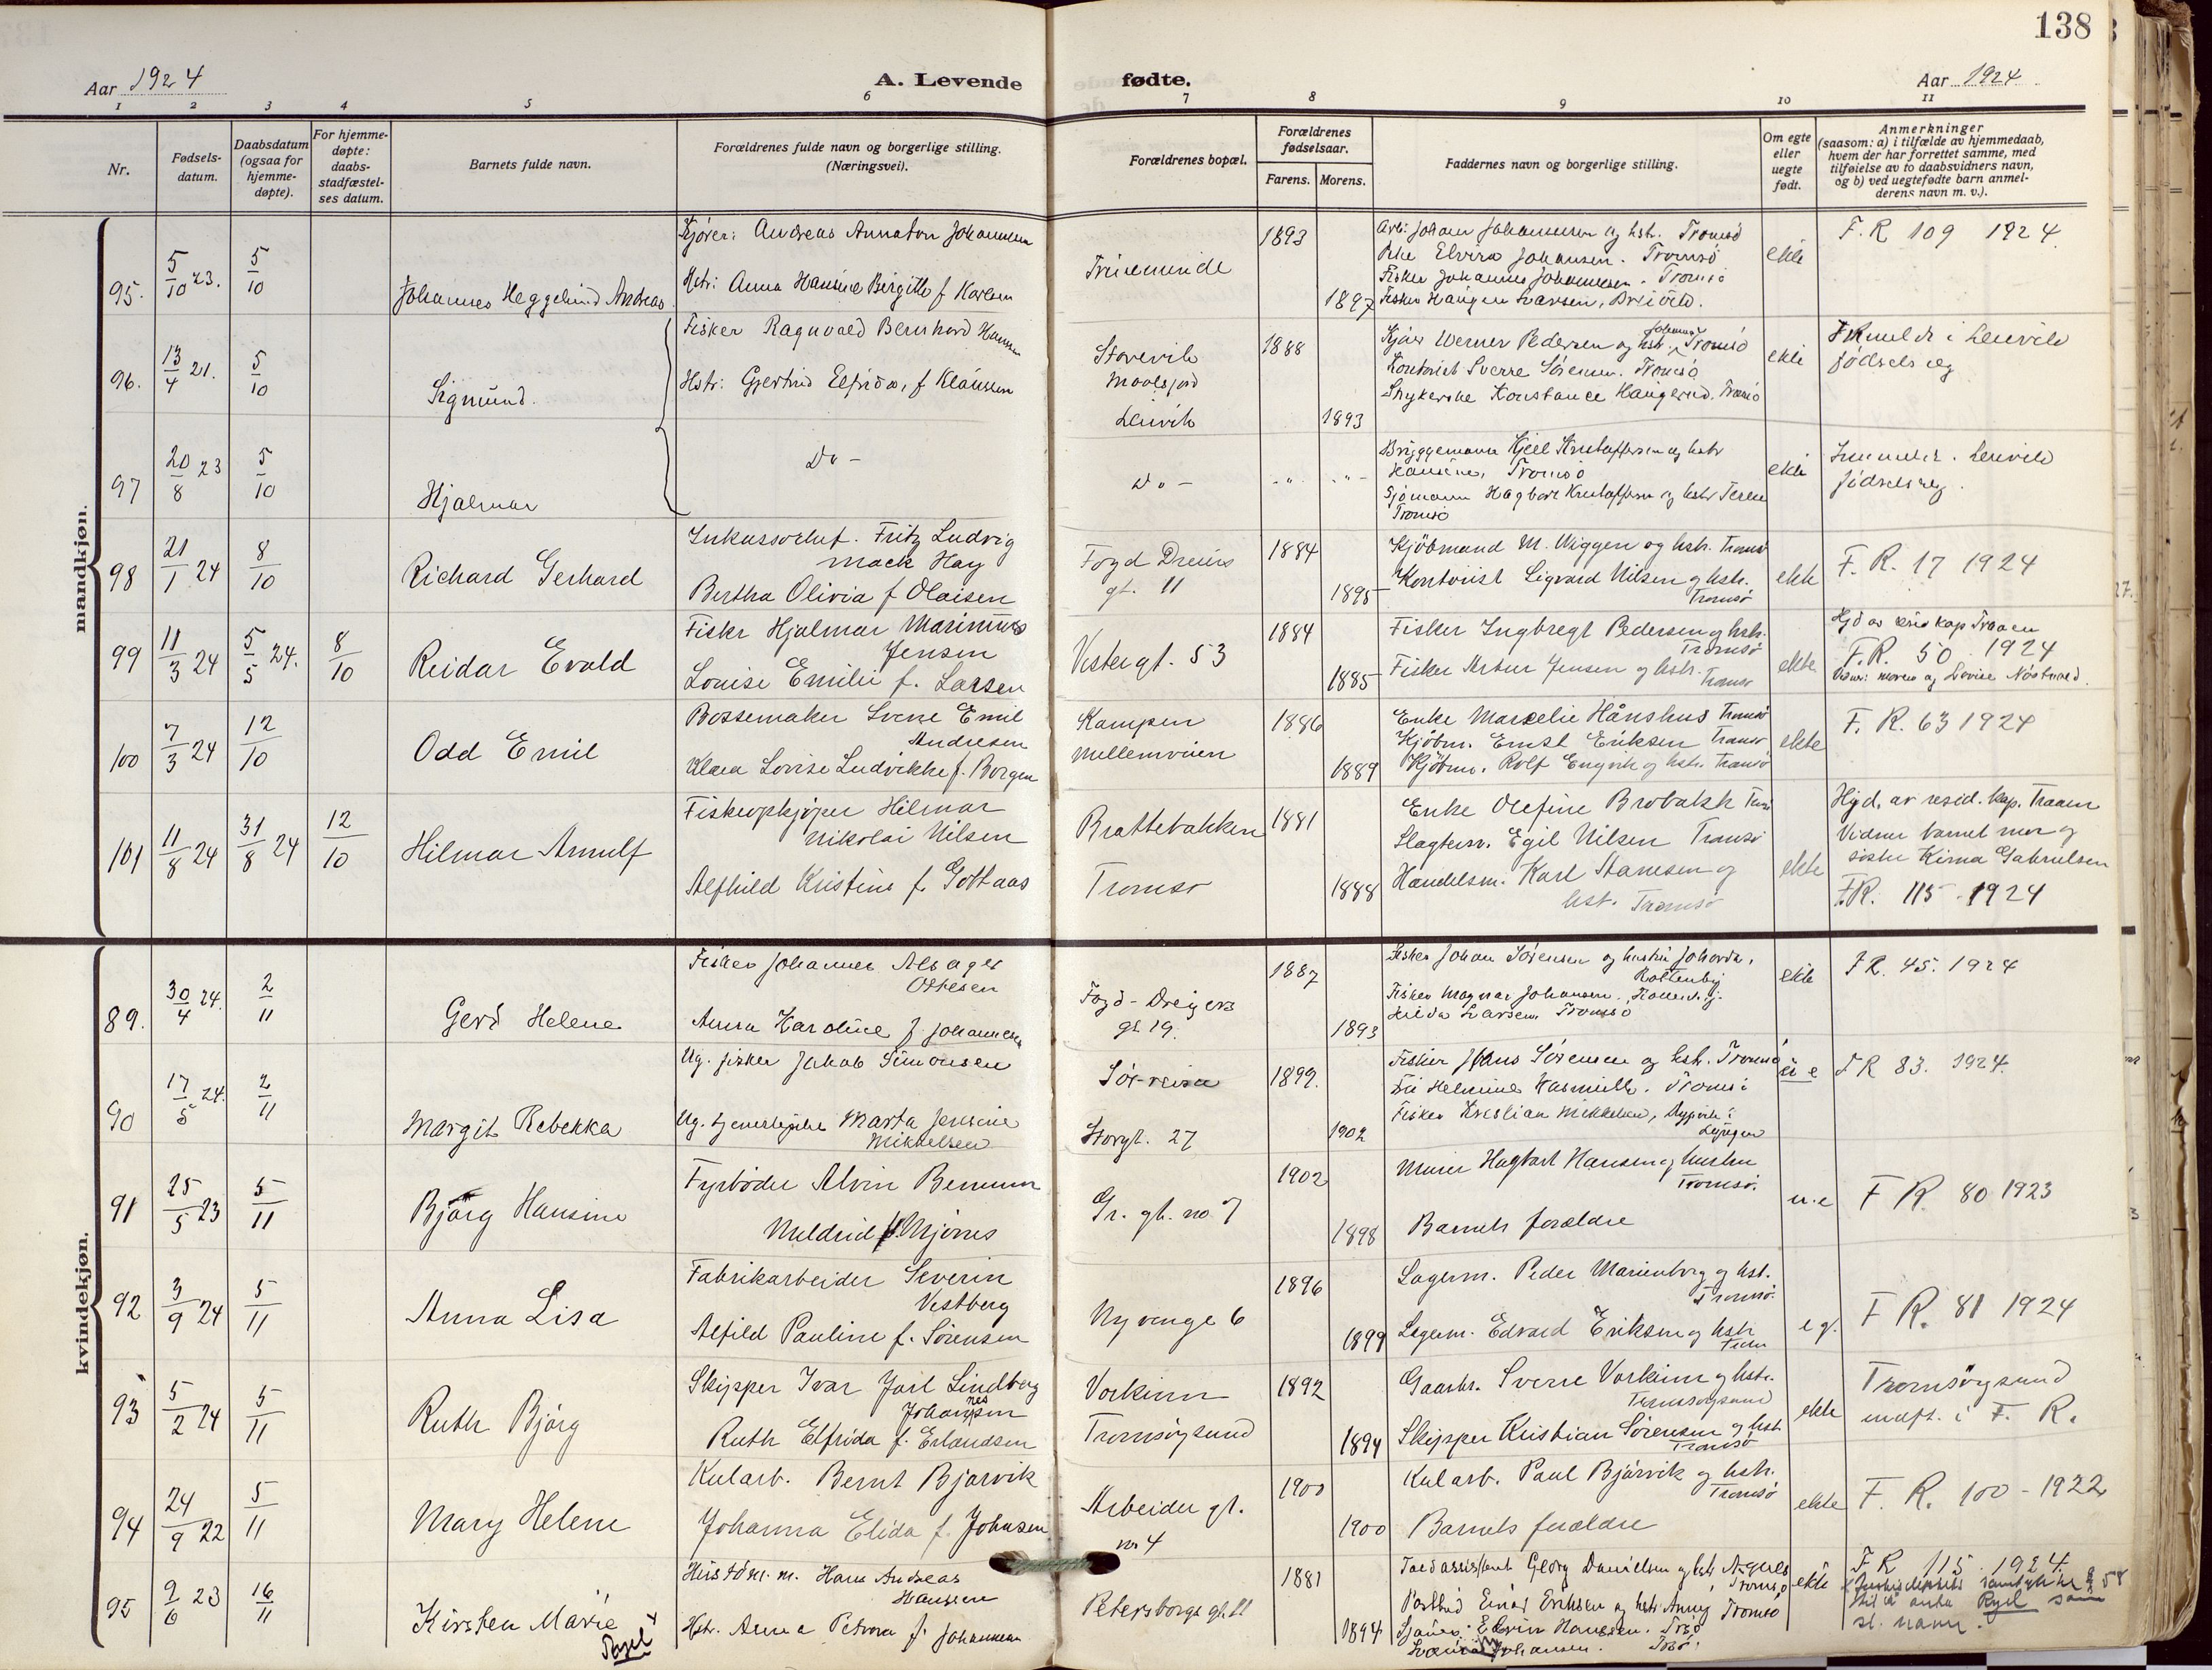 138
Aar 1924
A. Levende fødte.
Aar 1924
1 2 3 4 5 6 7 8 9 10 11
Nr.
Fødsels-datum.
Daabsdatum (ogsaa for hjemme-døpte).
For hjemme-døpte: daabs-stadfæstel-ses datum.
Barnets fulde navn.
Forældrenes fulde navn og borgerlige stilling. (Næringsvei).
Forældrenes bopæl.
Forældrenes fødselsaar.
Farens. Morens.
Faddernes navn og borgerlige stilling.
Om egte eller uegte født.
Anmerkninger (saasom: a) i tilfælde av hjemmedaab, hvem der har forrettet samme, med tilføielse av to daabsvidners navn, og b) ved uegtefødte barn anmel-derens navn m. v.).
mandkjøn.
95. 5/10 23. 5/10 Johannes Heggelund Andreas
Kjører: Andreas Annaton Johannesen
Hstr: Anna Hansine Birgitte f Karlsen
1893
1897
Arb: Johan Johannesen og hstr. Tromsø
Pike Elvira Johansen. Tromsø
Fisker Johannes Johannesen. Tromsø
ekte
F. R 109 1924.
96. 13/4 21. 5/10 Sigmund.
Fisker Ragnvald Bernhard Hansen
Hstr: Gjertrud Elfrida, f Klausen
Storevik
Malsfjord
Lenvik
1888
1893
Kjøer Werner Pedersen og hstr. Johanna Tromsø
Kontorist Sverre Sørensen. Tromsø
Strykerske Konstance Haugerud. Tromsø
ekte
Lenvik
fødselsreg
97 20/8 23 5/10 Hjalmar
Do -
Do -
Bryggemann Kjell Kristoffersen og hstr
Hansine, Tromsø
Sjømann Hagbart Kristoffersen og hstr
Tromsø
ekte
Innmeldt i Lenvik
fødselsreg.
98 21/1 24 8/10 Richard Gerhard
Inkassochef. Fritz Ludvig
Mack Hay
Bertha Olivia f Olaisen
Fogd Dreiers
gt. 11
1884
1895
Kjöbmand M. Wiggen og hstr. Tromsø
Kontorist Sigvard Nilsen og hstr.
Tromsø
ekte
F. R. 17 1924
99 11/3 24 5/5 24. 8/10 Reidar Evald
Fisker Hjalmar Marinius
Jensen
Louise Emilie f. Larsen
Vestergt. 53
1884
1885
Fisker Ingbregt Pedersen og hstr.
Tromsø
Fisker Artur Jensen og hstr. Tromsø
ekte
Hjd av res kap Traaen
F.R. 50 1924
100 7/3 24 12/10 Odd Emil
Bøssemaker Sverre Emil
Andresen
Klara Lovise Ludvikke f. Borgen
Kampen
Mellemveien
1886
1889
Enke Marcelie Hånshus Tromsø
Kjöbm. Ernst Eriksen Tromsø
Kjöbm. Rolf Engvik og hstr. Tromsø
ekte
F. R. 63 1924
101 11/8 24 31/8 24 12/10 Hilmar Arnulf
Fiskeopkjøper Hilmar
Nikolai Nilsen
Alfhild Kristine f. Gottaas
Brattebakken
Tromsø
1881
1888
Enke Olefine Brobakk
Slagterm. Egil Nilsen Tromsø
Handelsm. Karl Hansen og
hst. Tromsø
ekte
Hjd. av resid. kap. Traaen
Vidner barnet mor og
søster Kirna Gabrielsen
F.R. 115 1924
kvindekjøn.
89. 30/4 24. 2/11 Gerd Helene
Fisker Johannes Alsager
Ottesen
Anna Karoline f Johannesen
Fogd-Dreyers
gt 19.
1887
1893
Fisker Johan Sørensen og hustru
Fisker Magnar Johansen.
Hilda Larsen Tromsø
ekte
F R. 45. 1924
90 17/5 24. 2/11 Margit Rebekka
Ug. fisker Jakob Simonsen
Ug. tjenestepike Marta Jensine
Mikkelsen
Sør-reisa
Storgt. 27
1899.
1902
Fisker Hans Sørensen og hstr. Tromsø
Fisker Kristian Mikkelsen,
Lyngen
u e
F R 83. 1924.
91 25/5 23 5/11 Bjørg Hansine
Fyrbøder Alvin Bemmen
Meldrid f. Mjönes
Gr. gt. no 7
1902
1898
Murer Hagbart Hansen og hustru
Tromsø.
Barnets forældre
u. e
F R. 80 1923
92 3/9 24 5/11 Anna Lisa
Fabrikarbeider Severin
Vestberg
Alfild Pauline f. Sörensen
Ny venge 6
1896
1899
Lagerm. Peder Marienborg og hst.
Tromsø.
Lagerm. Edvard Eriksen og hstr
e g.
F R. 81 1924
93 5/2 24 5/11 Ruth Bjørg
Skipper Ivar Jarl Lindberg
Johannesen
Ruth Elfrida f. Erlandsen
Vorkinn
Tromsöysund
1892
1894
Gaarbr. Sverre Vorkinn og hstr.
Tromsöysund
Skipper Kristian Sørensen og hst
Tromsø
ekte
Tromsöysund
indft. i F. R.
94 24/9 22 5/11 Mary Helene
Kularb. Bernt Bjørvik
Johanna Elida f. Johnsen
Arbeider gt.
no 4
1900
1900
Kularb. Paul Bjørvik og hstr.
Tromsø
Barnets forældre
ekte
F. R. 100 - 1922
95 9/6 23 16/11 Kirsten Marie
Ryel
Hans Andreas
Hansen
Hstr. Anna Petrora f. Johannesen
Petersborgs gt.
1881
1894
Toldassistent Georg Danielsen og hstr Agnes
Tromsø
Postbud Einar Eriksen og hstr Anny Tromsø
Edvin Hansen.
Johansen.
ekte
F R 115 1924.
Ryel som
sl. navn.